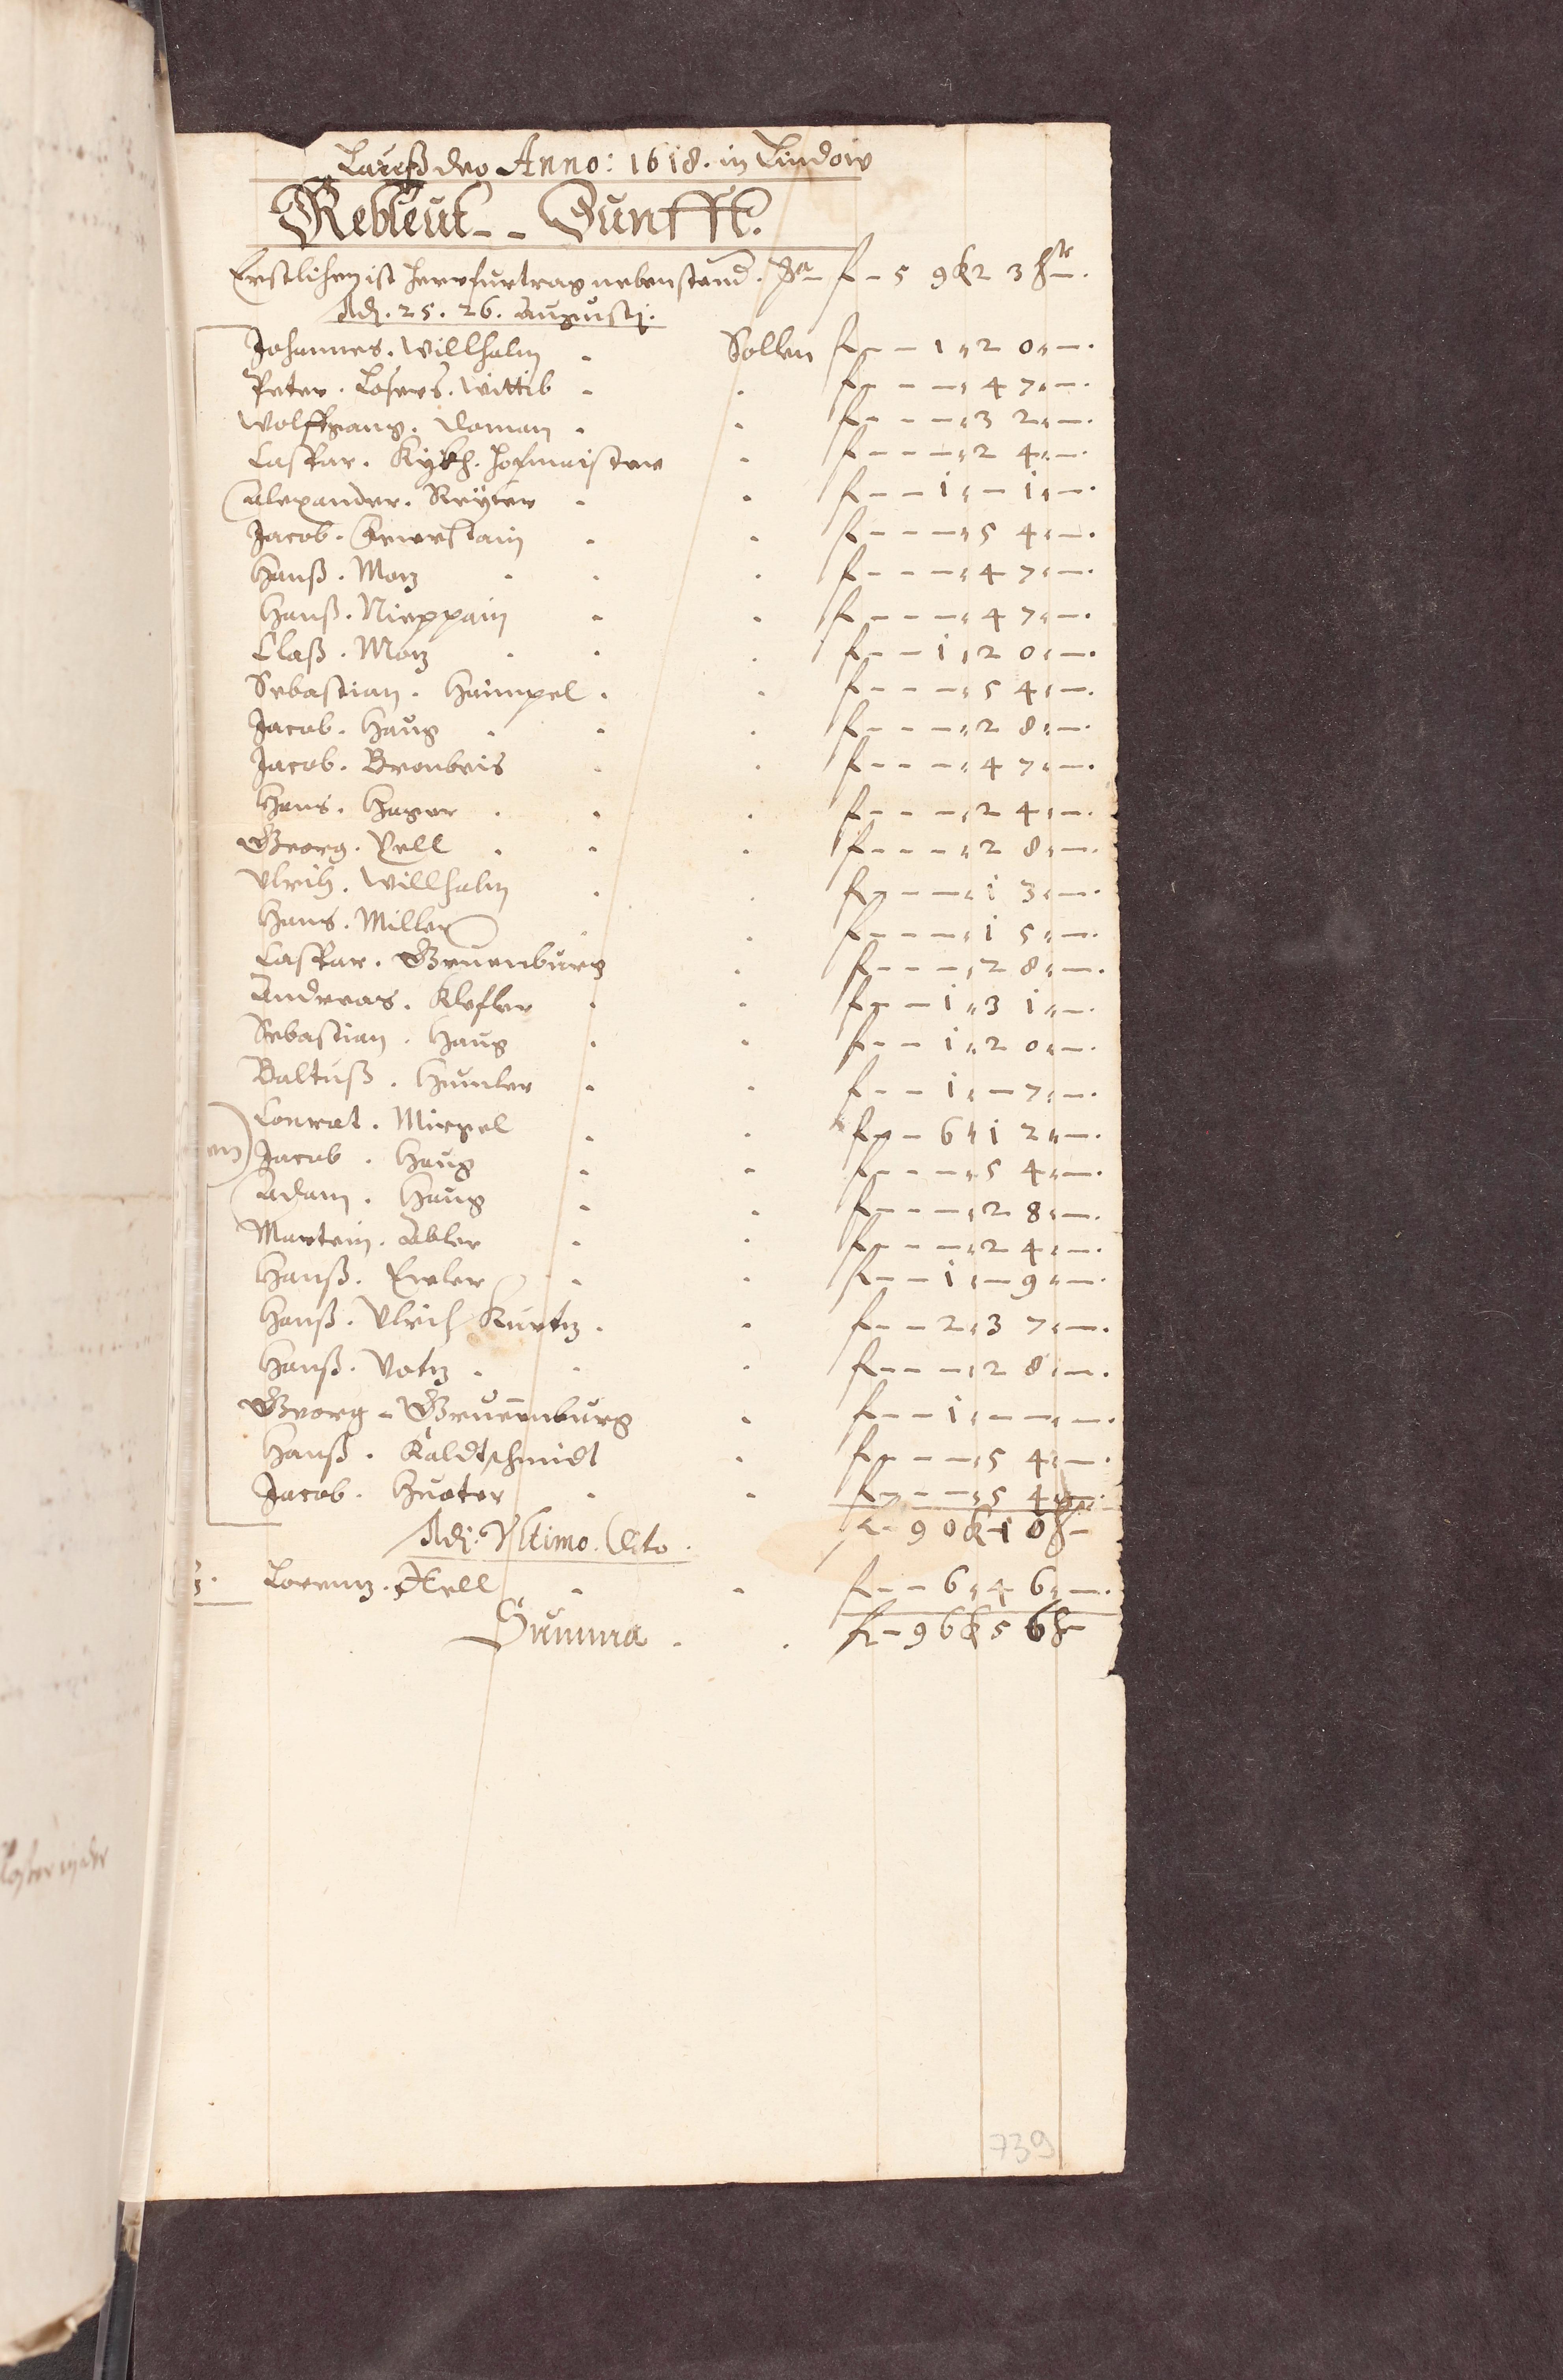 Laus deo Anno: 1618. in Lindow
Rebleut-- Zunfft.
Erstlichen ist herrfürtrag nebenstand. Pr fl - 5 9 k 2 3 hlr -.
Adj. 25. 26. Augustj.
Johannes. Willhalm . Sollen fl - - 1 " 2 0 " -.
Peter. Losers. Wittib . . fl - - - " 4 7 " -.
Wolffgang. Doman . . fl - - - " 3 2 " -.
Caspar. hofmaister . fl - - - " 2 4 " -.
Alexander. Reyter . . fl - - 1 " - 1 " -.
Jacob. . . fl - - - " 5 4 " -.
Hanß. Motz . . . fl - - - " 4 7 " -.
Hanß. Nieppain . . fl - - - " 4 7 " -.
Claß. Motz . . . fl - - 1 " 2 0 " -.
Sebastian. Haimpel . . fl - - - " 5 4 " -.
Jacob. Haug . . . fl - - - " 2 8 " -.
Jacob. Bronbeis . . fl - - - " 4 7 " -.
Hans. Hager . . . fl - - - " 2 4 " -.
Georg. Vell . . . fl - - - " 2 8 " -.
Vlrich. Willhalm . . fl - - - " 1 3 " -.
Hans. Miller . . fl - - - " 1 5 " -.
Caspar. Gruenburg . fl - - - " 2 8 " -.
Andreas. Klesler . . fl - - 1 " 3 1 " -.
Sebastian. Haug . . fl - - 1 " 2 0 " -.
Baltuß. Humler . . fl - - 1 " - 7 " -.
Conrat. Miegel . . fl - - 6 " 1 2 " -.
Jacob. Haug . . fl - - - " 5 4 " -.
Adam. Haug . . fl - - - " 2 8 " -.
Martein. Abler . . fl - - - " 2 4 " -.
Hanß. Eveler . . fl - - 1 " - 9 " -.
Hanß. Vlrich Kurtz . . fl - - 2 " 3 7 " -.
Hanß. Votz . . . fl - - - " 2 8 " -.
Georg - Gruenenburg . fl - - 1 " - - " -.
Hanß. Kaldtschmidt . fl - - - " 5 4 " -.
Jacob. Hueter . . fl - - - " 5 4 " -.
Adj: Vltimo. Dito . fl - 9 0 k 1 0 h -
Lorentz. Hell . . fl - - 6 " 4 6 " -.
Summa . . fl - 9 6 k 5 6 h -
739